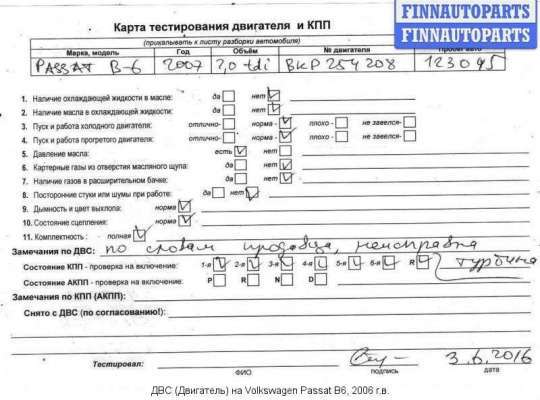 FINNAUTOPARTS
FINNAUTOPARTS
Карта тестирования двигателя и КПП
(прикалывать к листу разборки автомобиля)
Марка, модель Год Объём № двигателя Пробег авто
PASSAT B-6 2007 2,0 tdi BKP 254208 123095
1. Наличие охлаждающей жидкости в масле: да нет
2. Наличие масла в охлаждающей жидкости: да нет
3. Пуск и работа холодного двигателя: отлично- норма - плохо - не завелся-
4. Пуск и работа прогретого двигателя: отлично- норма - плохо - не завелся-
5. Давление масла: есть нет
6. Картерные газы из отверстия масляного щупа: да нет
7. Наличие газов в расширительном бачке: да нет
8. Посторонние стуки или шумы при работе: да нет
9. Дымность и цвет выхлопа: норма
10. Состояние сцепления: норма
11. Комплектность : полная
Замечания по ДВС: по словам продавца, неисправна
турбина
Состояние КПП - проверка на включение: 1-я 2-я 3-я 4-я 5-я 6-я R
Состояние АКПП - проверка на включение: P R N D
Замечания по КПП (АКПП):
Снято с ДВС (по согласованию!):
3.6.2016
Тестировал: ФИО подпись дата
ДВС (Двигатель) на Volkswagen Passat B6, 2006 г.в.